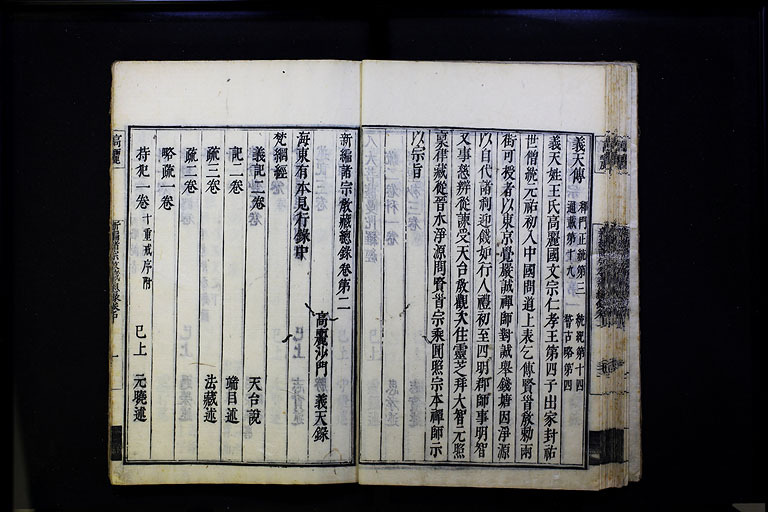 義天傳 釋門正統第三 統紀第十四
通載第十九 稽古略第四
義天姓王氏高麗國文宗仁孝王第四子出家封祐
世僧統元祐初入中國問道上表乞傳賢首教勅兩
街可授者以東京覺嚴誠禪師對誠舉錢塘因淨源
以自代諸刹迎餞如行人禮初至四明郡師事明智
又事慈辨從諫受天台教觀次住靈芝拜大智元照
稟律藏從晉水淨源問賢首宗乘圓照宗本禪師示
以宗旨
新編諸宗教藏總錄卷第二
高麗沙門 義天錄
海東有本見行錄中
梵網經
義記二卷 天台說
記二卷 瑜目述
疏三卷 法藏述
疏二卷
略疏一卷
持犯一卷 十重戒序附 已上 元曉述
高麗